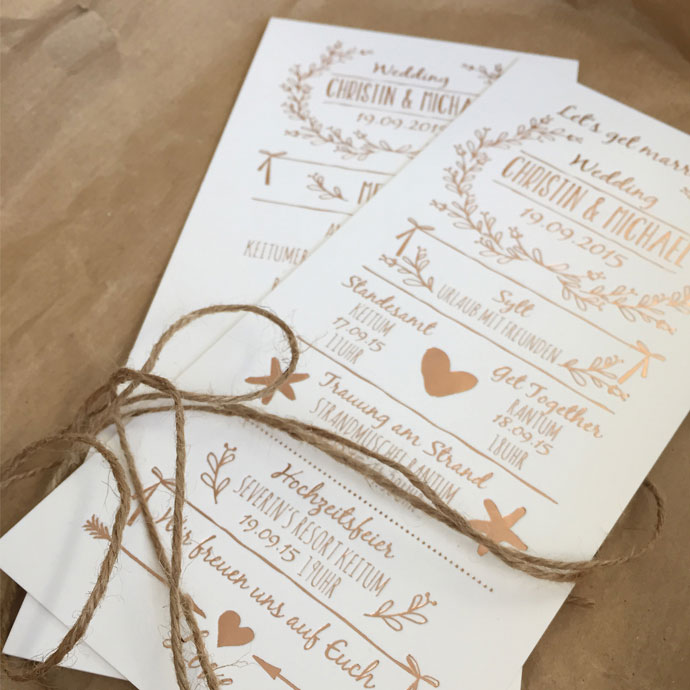 Wedding
CHRISTIN &
19.09.2015
Let's get
Wedding
CHRISTIN & MICHAEL
19.09.2015
Sylt
URLAUB MIT FREUNDEN
Standesamt
KEITUM
17.09.15
11UHR
Get Together
RANTUM
18.09.15
18UHR
Trauung am Strand
STRANDMUSCHEL RANTUM
Hochzeitsfeier
SEVERIN'S RESORT KEITUM
19.09.15 19UHR
Wir freuen uns auf Euch